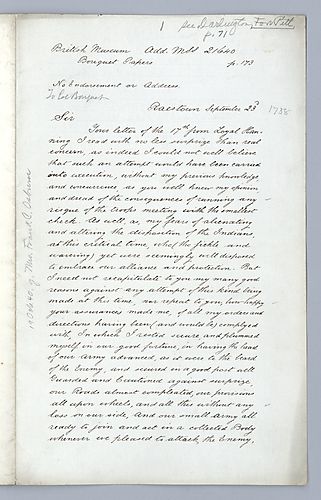 1
see Darlington, Fort Pitt
p. 71
British Museum Add. MSS 21640
Bouquet Papers p. 173
No Endorsement or Address.
To Col Bouquet
Raestown September 23d 1758
Sir
Your letter of the 17th from Loyal Han-
ning I read with no less surprize than real
concern, as indeed I could not well believe
that such an attempt would have been carried
into execution, without my previous knowledge
and concurrence, as you well knew my opinion
and dread of the consequences of running any
resque of the troops meeting with the smallest
check. As well, as my fears of alienating
and altering the disposition of the Indians
at this critical time, who (tho' fickle and
wavering) yet were seemingly well disposed
to embrace our alliance and protection. But
I need not recapitulate to you my many good
reasons against any attempt of this kind being
made at this time, nor repeat to you, how happy
your assurances made me, of all my orders and
directions having been (and would be) complyed
with. On which I rested secure and plummed
myself in our good fortune, in having the head
of our Army advanced, as it were to the beard
of the Enemy, and secured in a good post well
Guarded and Cautioned against surprize,
our Roads almost compleated, our provisions
all upon wheels, and all this without any
loss on our side, and our small Army all
ready to join and act in a collected Body
whenever we pleased to attack the Enemy.
Mrs. Frank A.